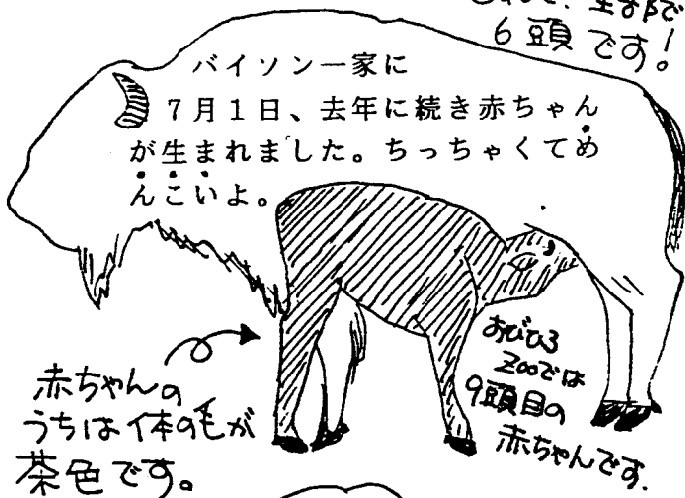 全部で
6頭です!
バイソン一家に
7月1日、去年に続き赤ちゃん
が生まれました。ちっちゃくてめ
んこいよ。
おびひろ
Zooでは
9頭目の
赤ちゃんです.
赤ちゃんの
うちは体の毛が
茶色です。